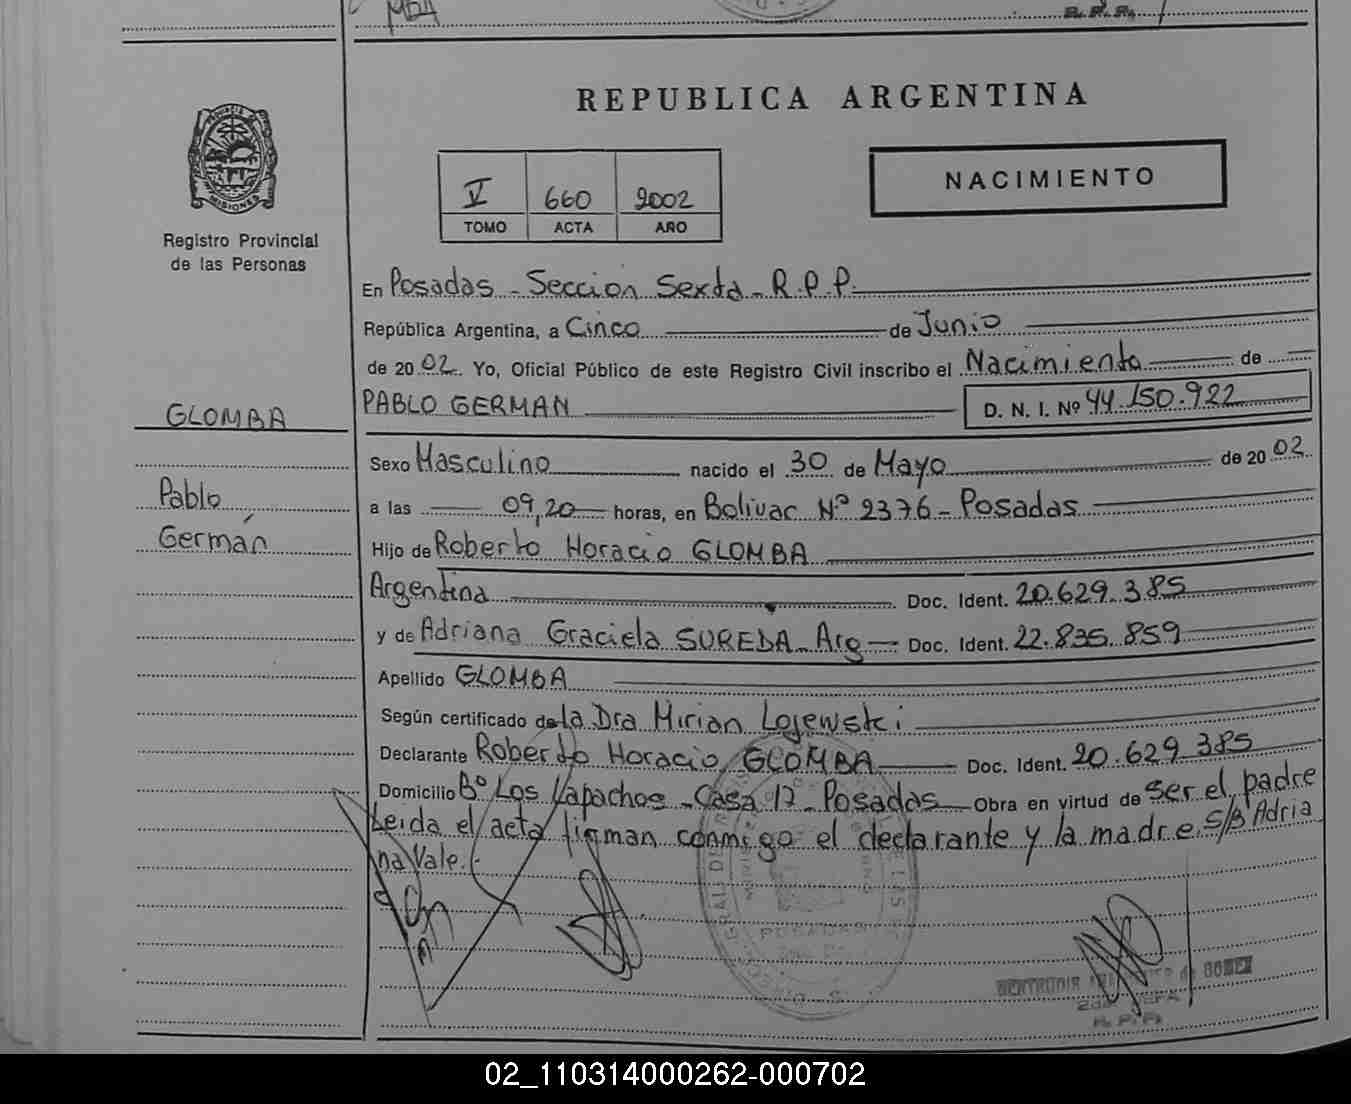 MBA
R. P. P.
REPUBLICA ARGENTINA
PROVINCIA DE
MISIONES
Registro Provincial
de las Personas
V 660 2002
TOMO ACTA AÑO
NACIMIENTO
En Posadas - Sección Sexta - R.P.P.
República Argentina, a Cinco de Junio
de 2002. Yo, Oficial Público de este Registro Civil inscribo el Nacimiento de
GLOMBA
PABLO GERMAN D. N. I. Nº 44.150.922
Sexo Masculino nacido el 30 de Mayo de 2002
Pablo
Germán
a las 09,20 horas, en Bolivar Nº 2376 - Posadas
Hijo de Roberto Horacio GLOMBA
Argentina Doc. Ident. 20.629.385
y de Adriana Graciela SUREDA - Arg Doc. Ident. 22.835.859
Apellido GLOMBA
Según certificado de la Dra Mirian Lojewski
Declarante Roberto Horacio GLOMBA Doc. Ident. 20.629.385
Domicilio Bº Los Lapachos - Casa 17 - Posadas Obra en virtud de ser el padre
Leida el acta firman conmigo el declarante y la madre. S/B Adria
na Vale.
POSADAS
R. P. P.
02_110314000262-000702